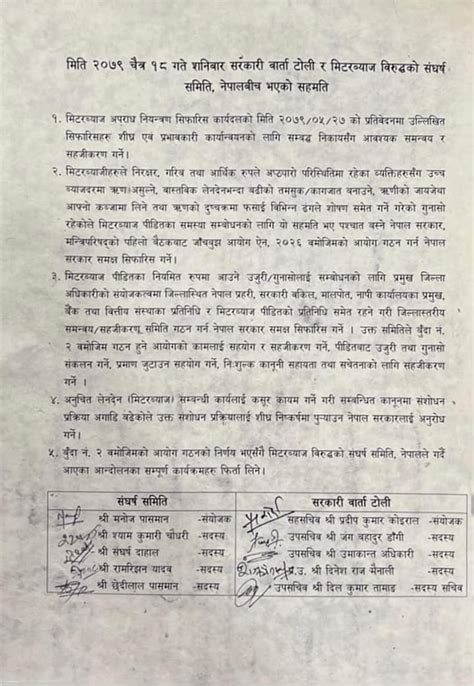 मिति २०७९ चैत्र १८ गते शनिबार सरकारी वार्ता टोली र मिटरब्याज विरुद्धको संघर्ष
समिति, नेपालबीच भएको सहमति
१. मिटरब्याज अपराध नियन्त्रण सिफारिस कार्यदलको मिति २०७९/०५/२७ को प्रतिवेदनमा उल्लिखित
सिफारिसहरु शीघ्र एवं प्रभावकारी कार्यान्वयनको लागि सम्बद्ध निकायसँग आवश्यक समन्वय र
सहजीकरण गर्ने।
२. मिटरब्याजीहरुले निरक्षर, गरिब तथा आर्थिक रुपले अप्ठ्यारो परिस्थितिमा रहेका व्यक्तिहरुसँग उच्च
ब्याजदरमा ऋण असुल्ने, वास्तविक लेनदेनभन्दा बढीको तमसुक/कागजात बनाउने, ऋणीको जायजेथा
आफ्नो कब्जामा लिने तथा ऋणको दुष्चक्रमा फसाई विभिन्न ढंगले शोषण समेत गर्ने गरेको गुनासो
रहेकोले मिटरब्याज पीडितका समस्या सम्बोधनको लागि यो सहमति भए पश्चात बस्ने नेपाल सरकार,
मन्त्रिपरिषद्को पहिलो बैठकबाट जाँचबुझ आयोग ऐन, २०२६ बमोजिमको आयोग गठन गर्न नेपाल
सरकार समक्ष सिफारिस गर्ने।
३. मिटरब्याज पीडितका नियमित रुपमा आउने उजुरी/गुनासोलाई सम्बोधनको लागि प्रमुख जिल्ला
अधिकारीको संयोजकत्वमा जिल्लास्थित नेपाल प्रहरी, सरकारी वकिल, मालपोत, नापी कार्यालयका प्रमुख,
बैंक तथा वित्तीय संस्थाका प्रतिनिधि र मिटरब्याज पीडितको प्रतिनिधि समेत रहने गरी जिल्लास्तरीय
समन्वय/सहजीकरण समिति गठन गर्न नेपाल सरकार समक्ष सिफारिस गर्ने । उक्त समितिले बुँदा नं.
२ बमोजिम गठन हुने आयोगको कामलाई सहयोग र सहजीकरण गर्ने, पीडितबाट उजुरी तथा गुनासो
संकलन गर्ने, प्रमाण जुटाउन सहयोग गर्ने, निःशुल्क कानूनी सहायता तथा सचेतनाको लागि सहजीकरण
गर्ने ।
४. अनुचित लेनदेन (मिटरब्याज) सम्बन्धी कार्यलाई कसुर कायम गर्ने गरी सम्बन्धित कानूनमा संशोधन
प्रक्रिया अगाडि बढेकोले उक्त संशोधन प्रक्रियालाई शीघ्र निष्कर्षमा पुऱ्याउन नेपाल सरकारलाई अनुरोध
गर्ने।
५. बुँदा नं. २ बमोजिमको आयोग गठनको निर्णय भएसँगै मिटरब्याज विरुद्धको संघर्ष समिति, नेपालले गर्दै
आएका आन्दोलनका सम्पूर्ण कार्यक्रमहरु फिर्ता लिने।
संघर्ष समिति
श्री मनोज पासमान -संयोजक
श्री श्याम कुमारी चौधरी -सदस्य
श्री संघर्ष दाहाल -सदस्य
श्री रामरिझन यादव -सदस्य
श्री छेदीलाल पासमान -सदस्य
सरकारी वार्ता टोली
सहसचिव श्री प्रदीप कुमार कोइराल -संयोजक
उपसचिव श्री जग बहादुर डाँगी -सदस्य
उपसचिव श्री उमाकान्त अधिकारी -सदस्य
प्र.उ. श्री दिनेश राज मैनाली -सदस्य
उपसचिव श्री दिल कुमार तामाङ -सदस्य सचिव